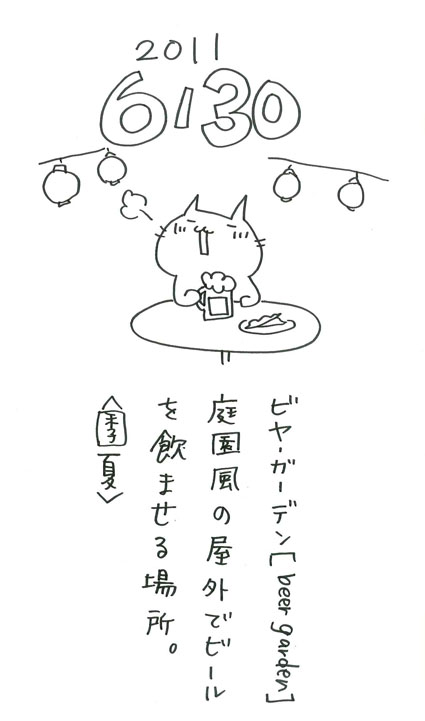 2011
6/30
ビヤ・ガーデン[beer garden]
庭園風の屋外でビール
を飲ませる場所。
〈季夏〉